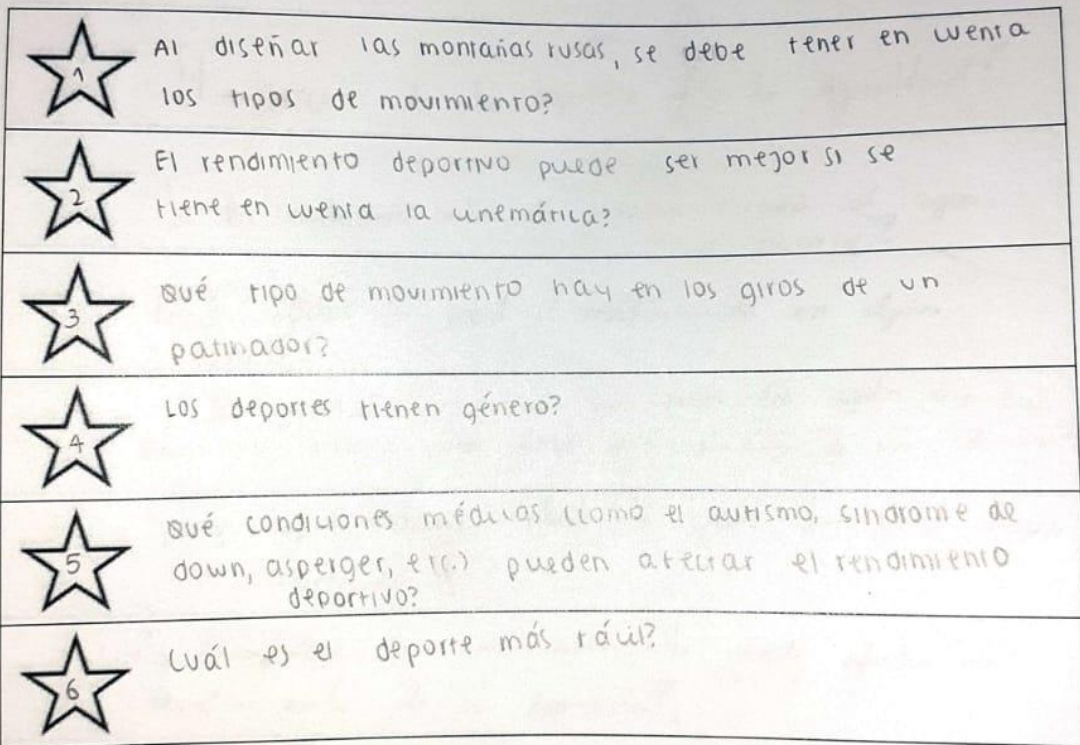 1
Al diseñar las montañas rusas, se debe tener en cuenta
los tipos de movimiento?
2
El rendimiento deportivo puede ser mejor si se
tiene en cuenta la cinemática?
3
Qué tipo de movimiento hay en los giros de un
patinador?
4
Los deportes tienen género?
5
Qué condiciones médicas (como el autismo, sindrome de
down, asperger, etc.) pueden afectar el rendimiento
deportivo?
6
Cuál es el deporte más fácil?